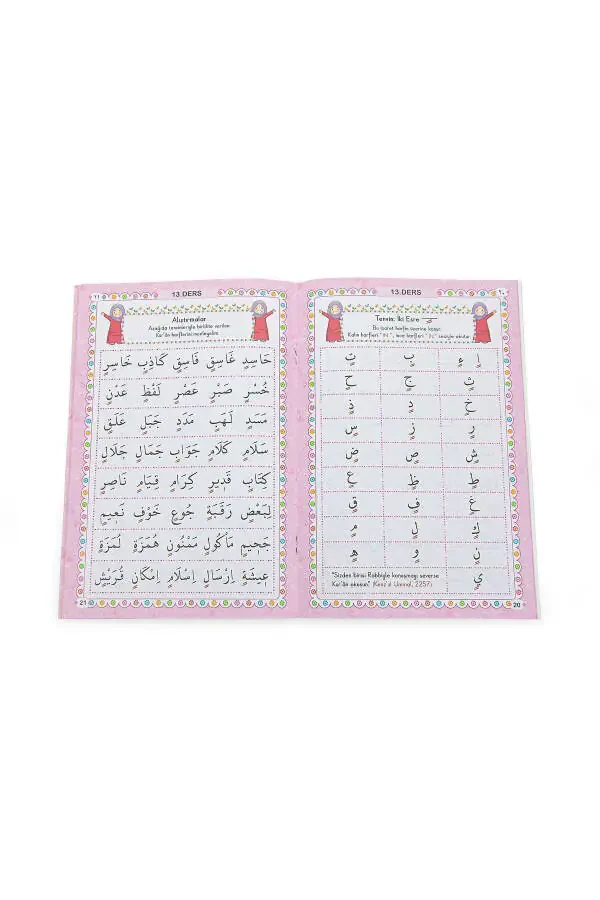 13.DERS
٢٠
Tenvin: İki Esre ـٍـ
Bu işaret harfin altına konur.
Kalın harfleri " IN ", ince harfleri " İN " sesiyle okutur.
اٍ ءٍ بٍ تٍ
ثٍ جٍ حٍ
خٍ دٍ ذٍ
رٍ زٍ سٍ
شٍ صٍ ضٍ
طٍ ظٍ عٍ
غٍ فٍ قٍ
كٍ لٍ مٍ
نٍ وٍ هٍ
يٍ
"Sizden birisi Rabbiyle konuşmayı severse
Kur'ân okusun" (Kenz'ül Ummal, 2257)
20
٢١
13.DERS
Alıştırmalar
Aşağıda tenvinleriyle birlikte verilen
Kur'ân harflerini inceleyelim.
حَاسِدٍ غَاسِقٍ فَاسِقٍ كَاذِبٍ خَاسِرٍ
خُسْرٍ صَبْرٍ عَصْرٍ لَفْظٍ عَدْنٍ
مَسَدٍ لَهَبٍ مَدَدٍ جَبَلٍ عَلَقٍ
سَلَامٍ كَلَامٍ جَوَابٍ جَمَالٍ جَلَالٍ
كِتَابٍ قَدِيرٍ كِرَامٍ قِيَامٍ نَاصِرٍ
لِبَعْضٍ رَقَبَةٍ جُوعٍ خَوْفٍ نَعِيمٍ
جَحِيمٍ مَأْكُولٍ مَمْنُونٍ هُمَزَةٍ لُمَزَةٍ
عِيشَةٍ اِرْسَالٍ اِسْلَامٍ اِمْكَانٍ قُرَيْشٍ
21